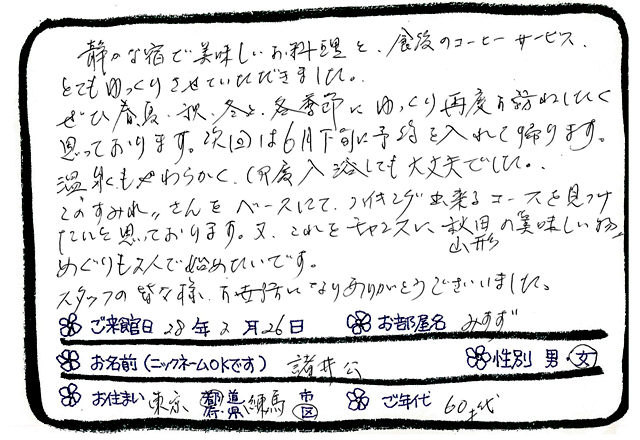 静かな宿で美味しいお料理と、食後のコーヒーサービス、
とてもゆっくりさせていただきました。
ぜひ春、夏、秋、冬と、各季節にゆっくり再度お訪ねしたく
思っております。次回は6月下旬に予約を入れて帰ります。
温泉もやわらかく、何度入浴しても大丈夫でした。
この"すみれ"さんをベースにて、ハイキング出来るコースを見つけ
たいと思っております。又、これをチャンスに、秋田 山形の美味しい物
めぐりも2人で始めたいです。
スタッフの皆々様、お世話になりありがとうございました。
ご来館日 28年2月26日 お部屋名 みすず
お名前(ニックネームOKです) 諸井公 性別 男・女
お住まい 東京 都道府県 練馬 市区 ご年代 60才代